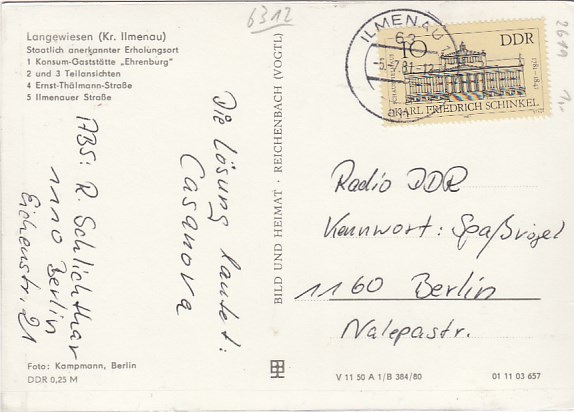 6312
Langewiesen (Kr. Ilmenau)
Staatlich anerkannter Erholungsort
1 Konsum-Gaststätte „Ehrenburg"
2 und 3 Teilansichten
4 Ernst-Thälmann-Straße
5 Ilmenauer Straße
Die Lösung lautet:
Casanova
ABS: R. Schlichthar
1110 Berlin
Eichenstr. 21
Foto: Kampmann, Berlin
DDR 0,25 M
BILD UND HEIMAT · REICHENBACH (VOGTL)
ILMENAU 1
63
-5.-7.81-12
10
DDR
1781–1841
KARL FRIEDRICH SCHINKEL
2619
Radio DDR
Kennwort: Spaßvogel
1160 Berlin
Nalepastr.
V 11 50 A 1/B 384/80
01 11 03 657